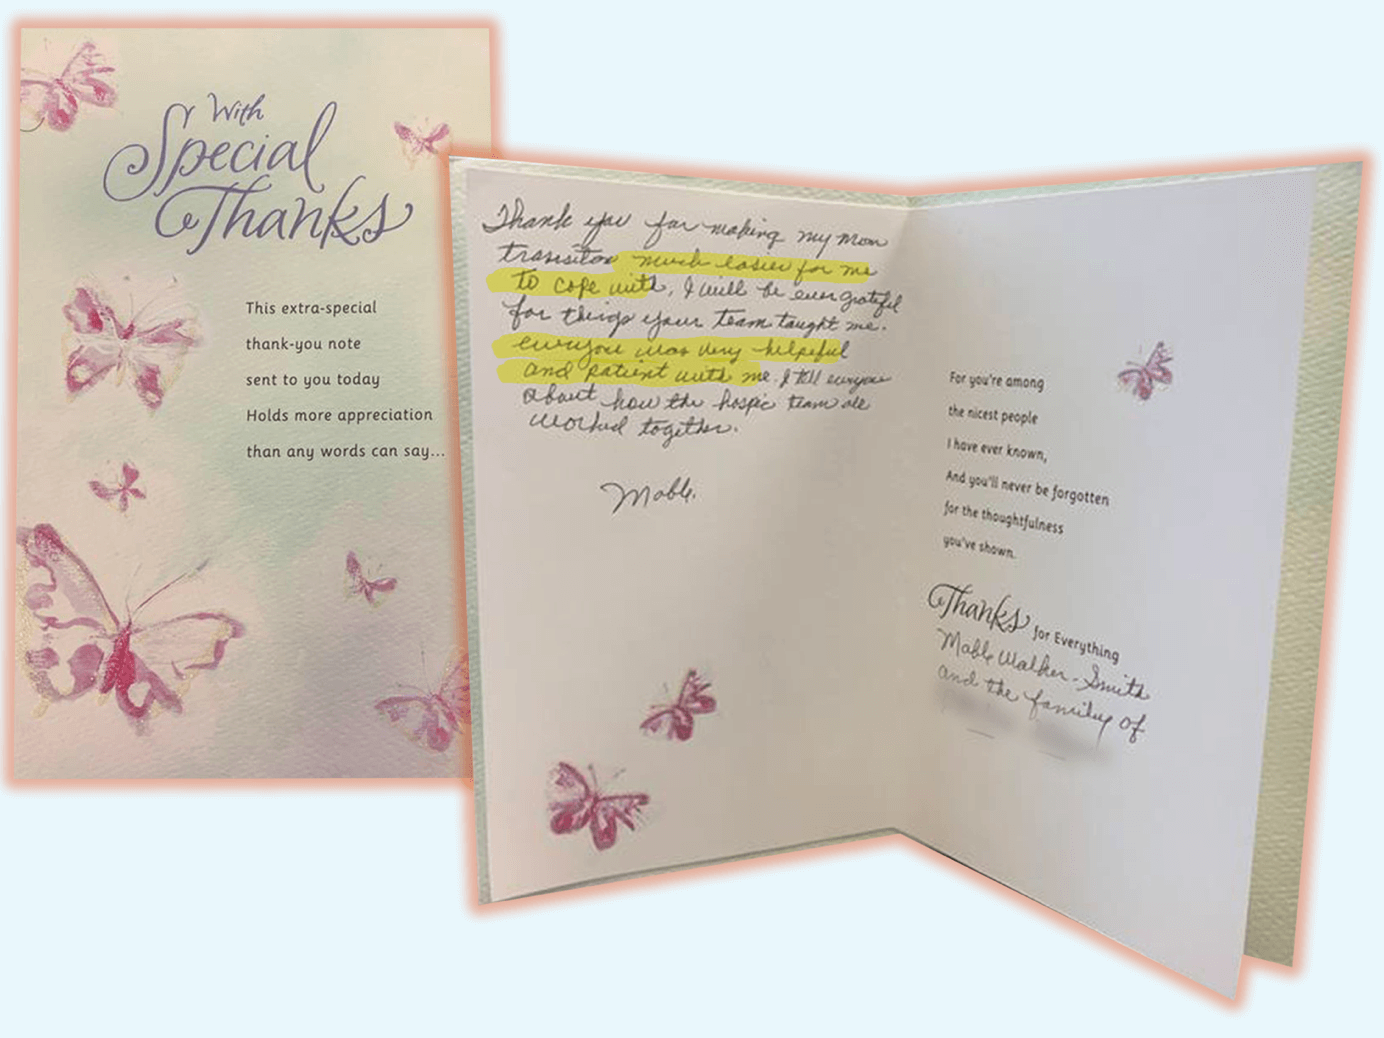 With
Special
Thanks
This extra-special
thank-you note
sent to you today
Holds more appreciation
than any words can say...
Thank you for making my mom
transiton much easier for me
to cope with, I will be ever grateful
for things your team taught me.
everyou was very helpful
and patient with me. I tell everyou
about how the hospic team all
worked together.
Mable.
For you're among
the nicest people
I have ever known,
And you'll never be forgotten
for the thoughtfulness
you've shown.
Thanks for Everything
Mable Walker-Smith
and the family of